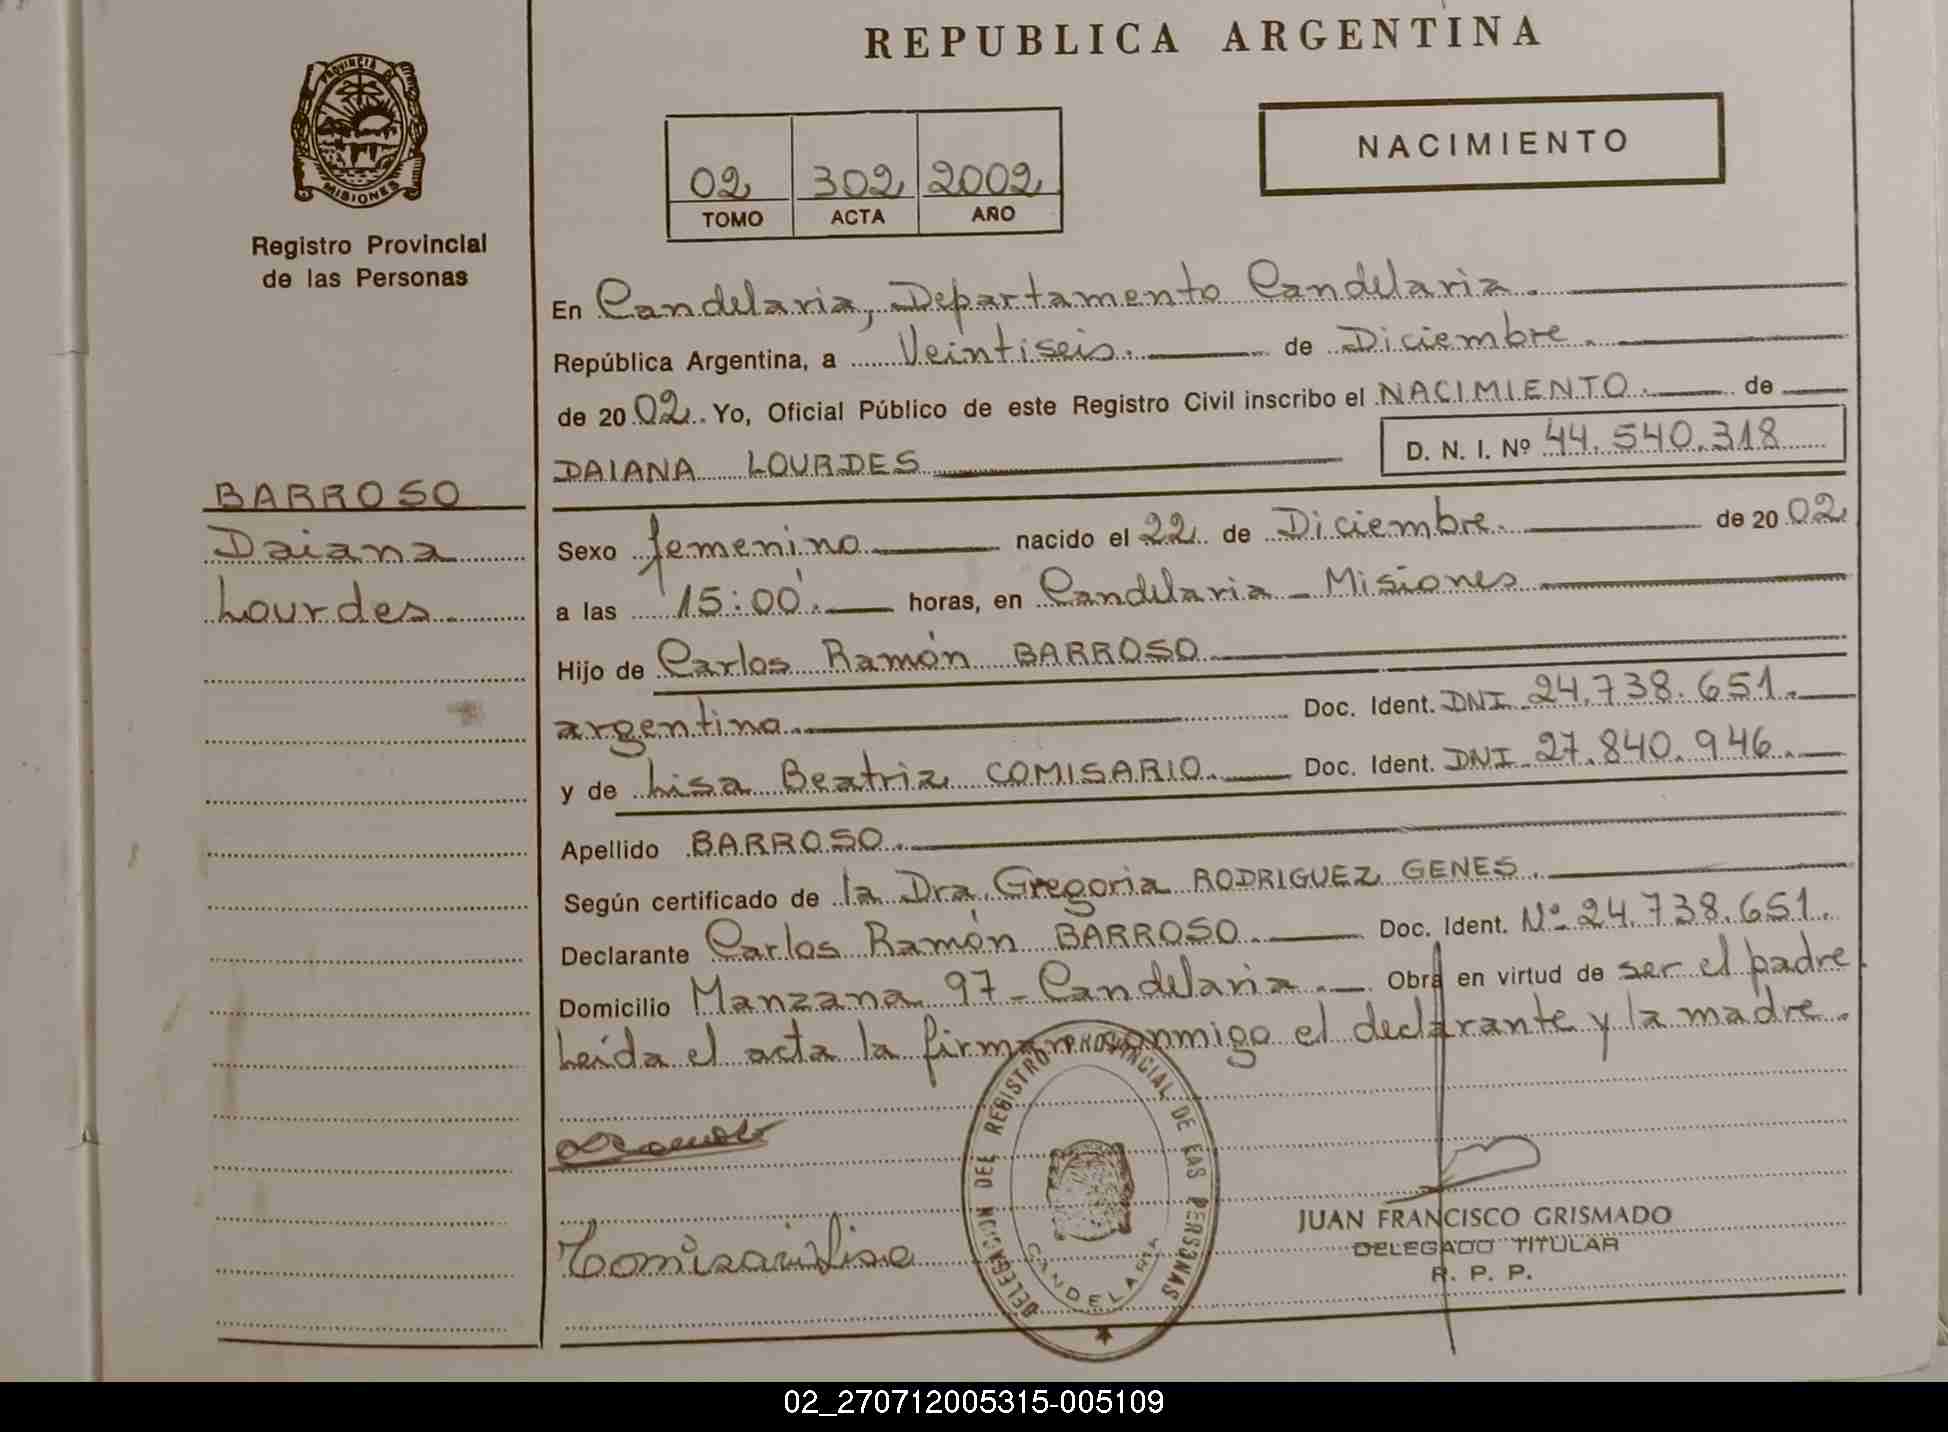 REPUBLICA ARGENTINA
PROVINCIA DE
MISIONES
Registro Provincial
de las Personas
02 302 2002
TOMO ACTA AÑO
NACIMIENTO
En Candelaria, Departamento Candelaria.
República Argentina, a Veintiseis. de Diciembre.
de 2002. Yo, Oficial Público de este Registro Civil inscribo el NACIMIENTO. de
DAIANA LOURDES D. N. I. Nº 44.540.318
BARROSO
Daiana
Lourdes.
Sexo femenino nacido el 22 de Diciembre. de 2002
a las 15:00'. horas, en Candelaria - Misiones
Hijo de Carlos Ramón BARROSO
argentina. Doc. Ident. DNI 24.738.651.
y de Lisa Beatriz COMISARIO. Doc. Ident. DNI 27.840.946.
Apellido BARROSO.
Según certificado de la Dra. Gregoria RODRIGUEZ GENES.
Declarante Carlos Ramón BARROSO. Doc. Ident. Nº 24.738.651.
Domicilio Manzana 97 - Candelaria. Obra en virtud de ser el padre
Leída el acta la firman conmigo el declarante y la madre.
DELEGACION DEL REGISTRO PROVINCIAL DE LAS PERSONAS
CANDELARIA
Comisario Lisa
JUAN FRANCISCO GRISMADO
DELEGADO TITULAR
R. P. P.
02_270712005315-005109